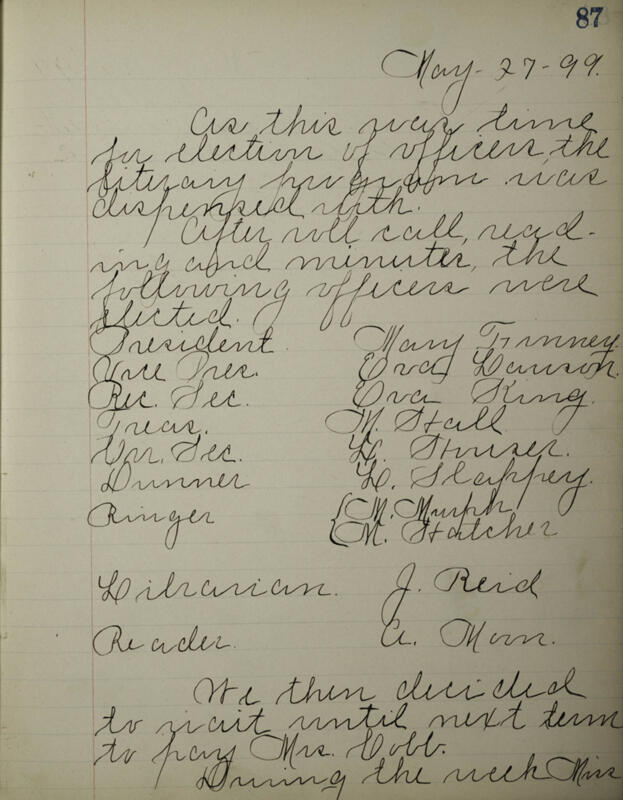 87
May - 27 - 99.
As this was time
for election of officers, the
literary program was
dispensed with.
After roll call, read-
ing and minutes, the
following officers were
elected.
President Mary Finney.
Vice Pres. Eva Lawson.
Rec. Sec. Eva King.
Treas. M. Stall
Cor. Sec. L. Stouser.
Dunner L. Slappey.
Ringer { M. Murph
M. Hatcher
Librarian. J. Reid
Reader. A. Moon.
We then decided
to wait until next term
to pay Mrs. Cobb.
During the week Miss